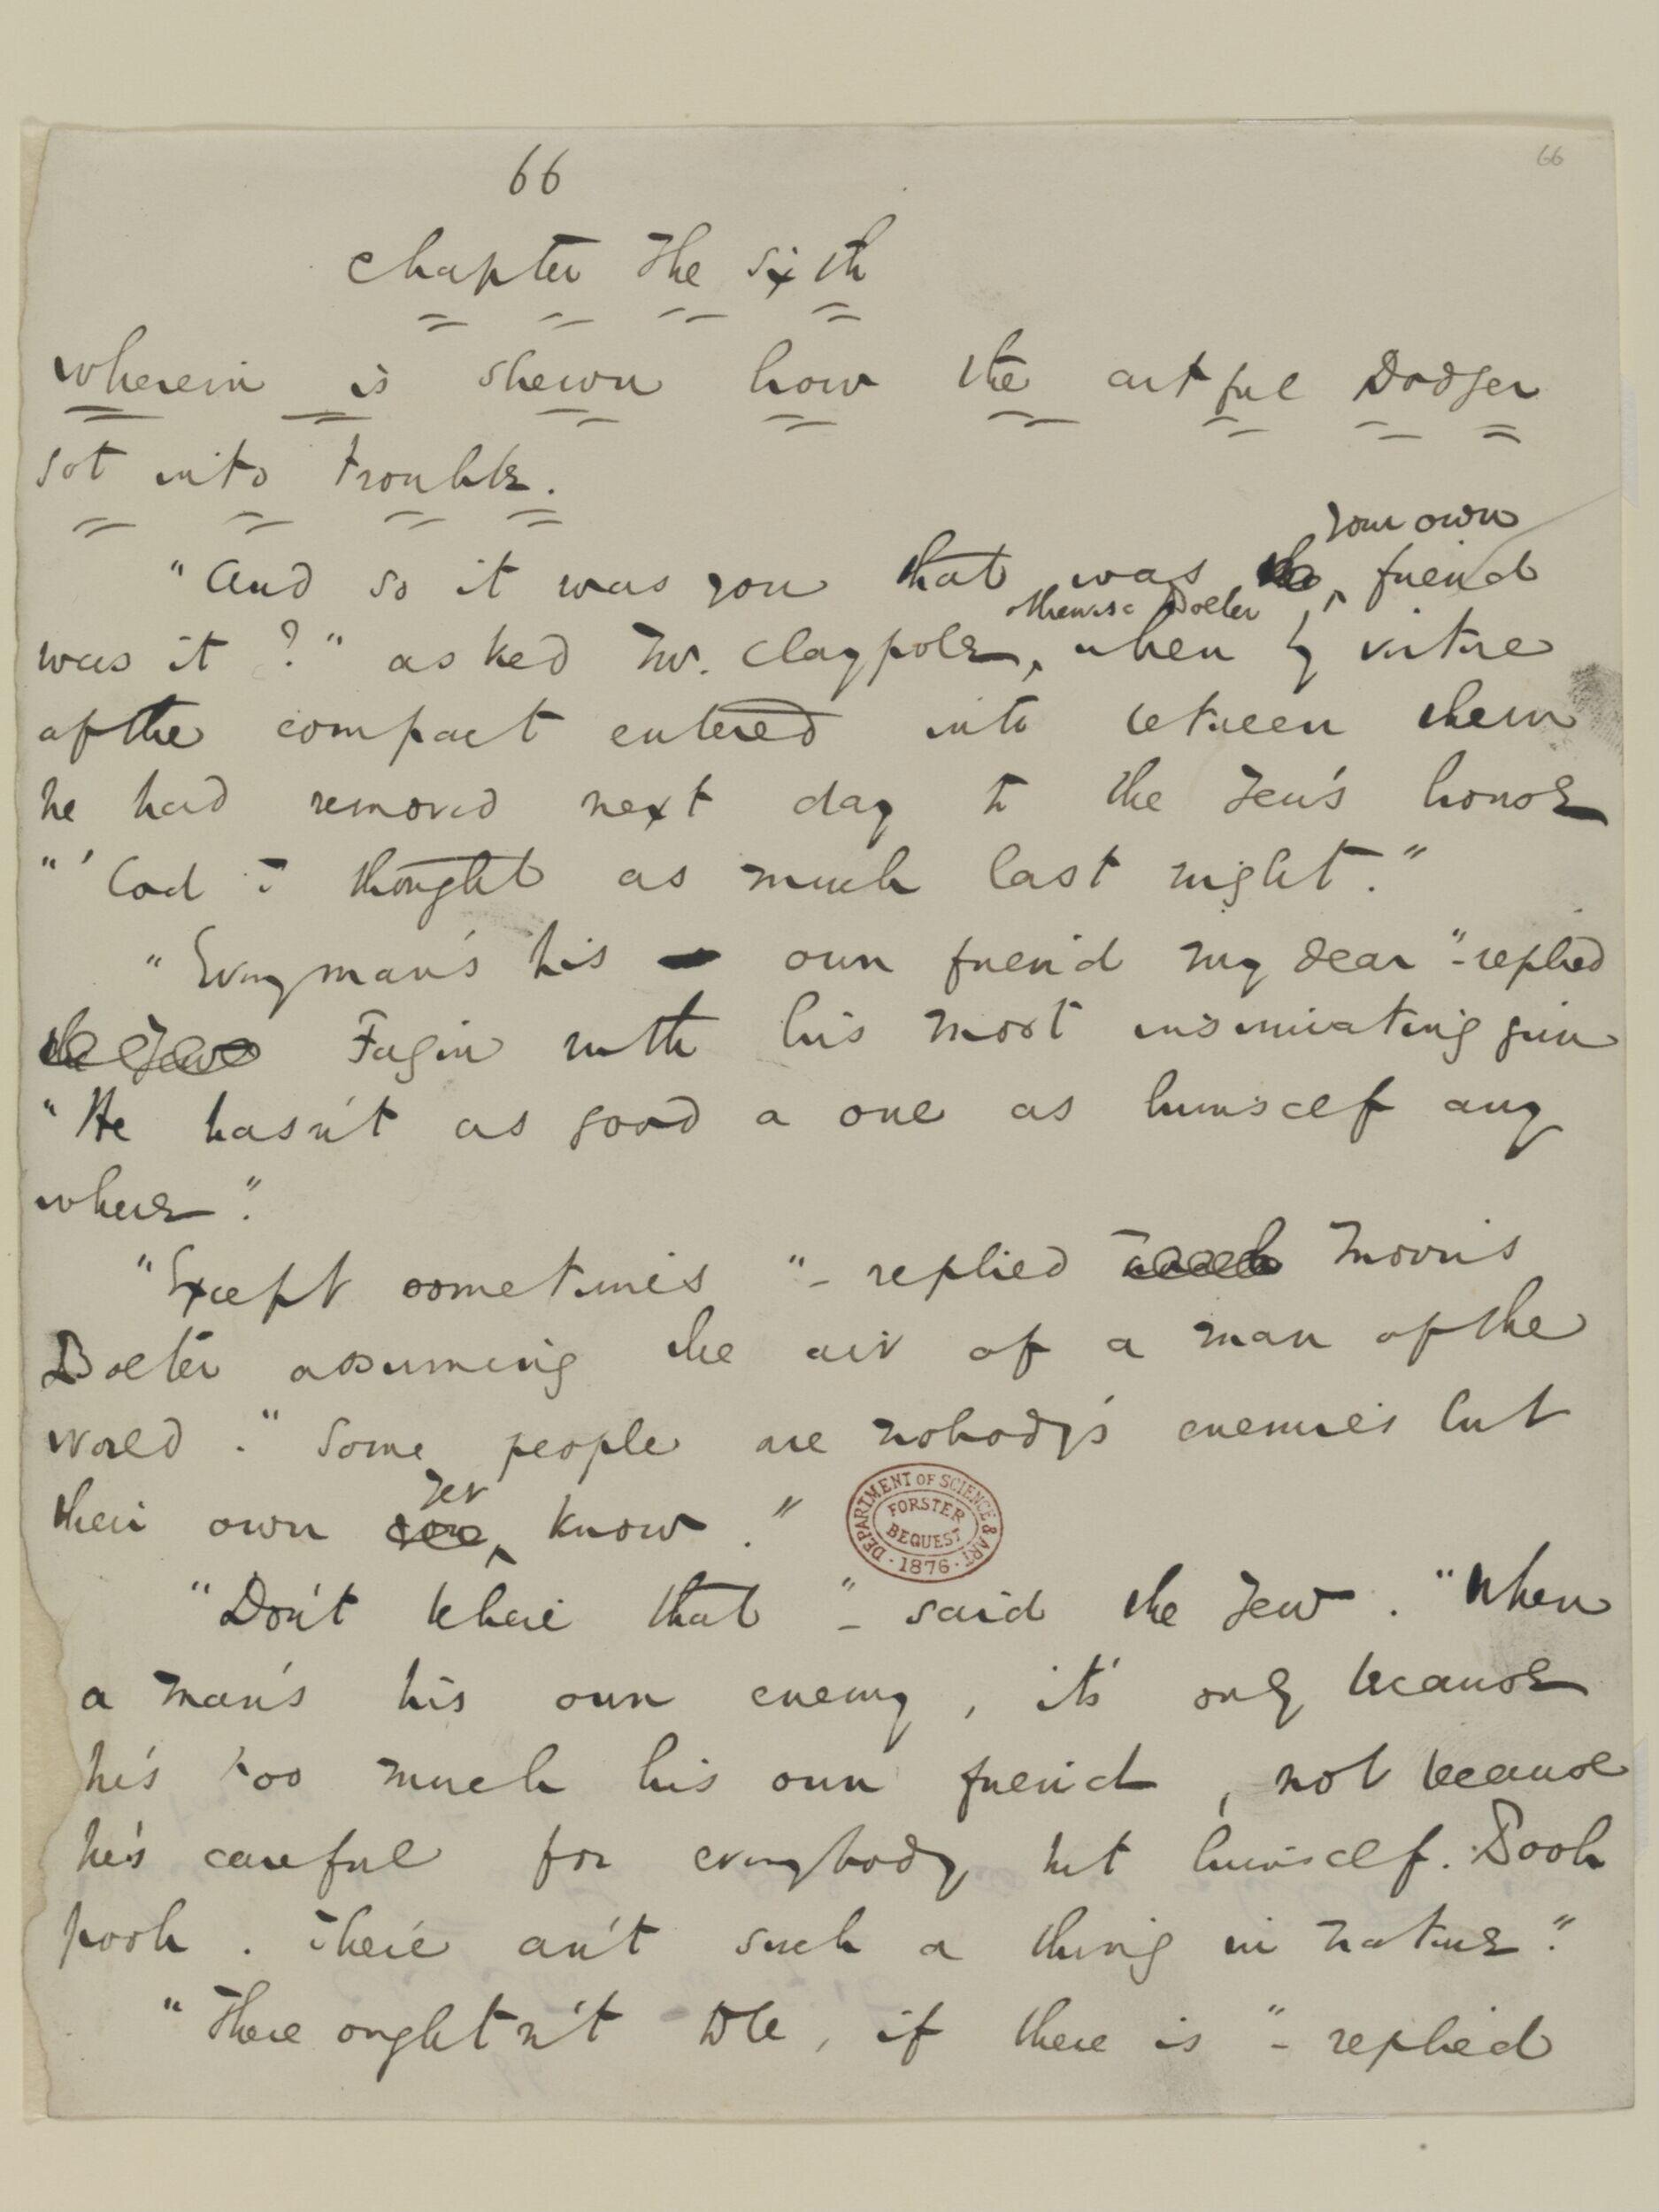 66
66
Chapter the Sixth
Wherein is shewn how the artful Dodger
got into trouble.
your own
"And so it was you that was the friend
otherwise Bolter
was it?" asked Mr. Claypole, when by virtue
of the compact entered into between them
he had removed next day to the Jew's house
"'Cod I thought as much last night."
"Every man's his own friend my dear"–replied
the Jew Fagin with his most insinuating grin
"He hasn't as good a one as himself any
where."
"Except sometimes"–replied Morris
Bolter assuming the air of a man of the
world. "Some people are nobody's enemies but
yer
their own you know."
DEPARTMENT OF SCIENCE & ART
FORSTER
BEQUEST
1876
"Don't believe that"–said the Jew. "When
a man's his own enemy, it's only because
he's too much his own friend, not because
he's careful for everybody but himself. Pooh
pooh. There ain't such a thing in nature."
"There oughtn't to be, if there is"–replied